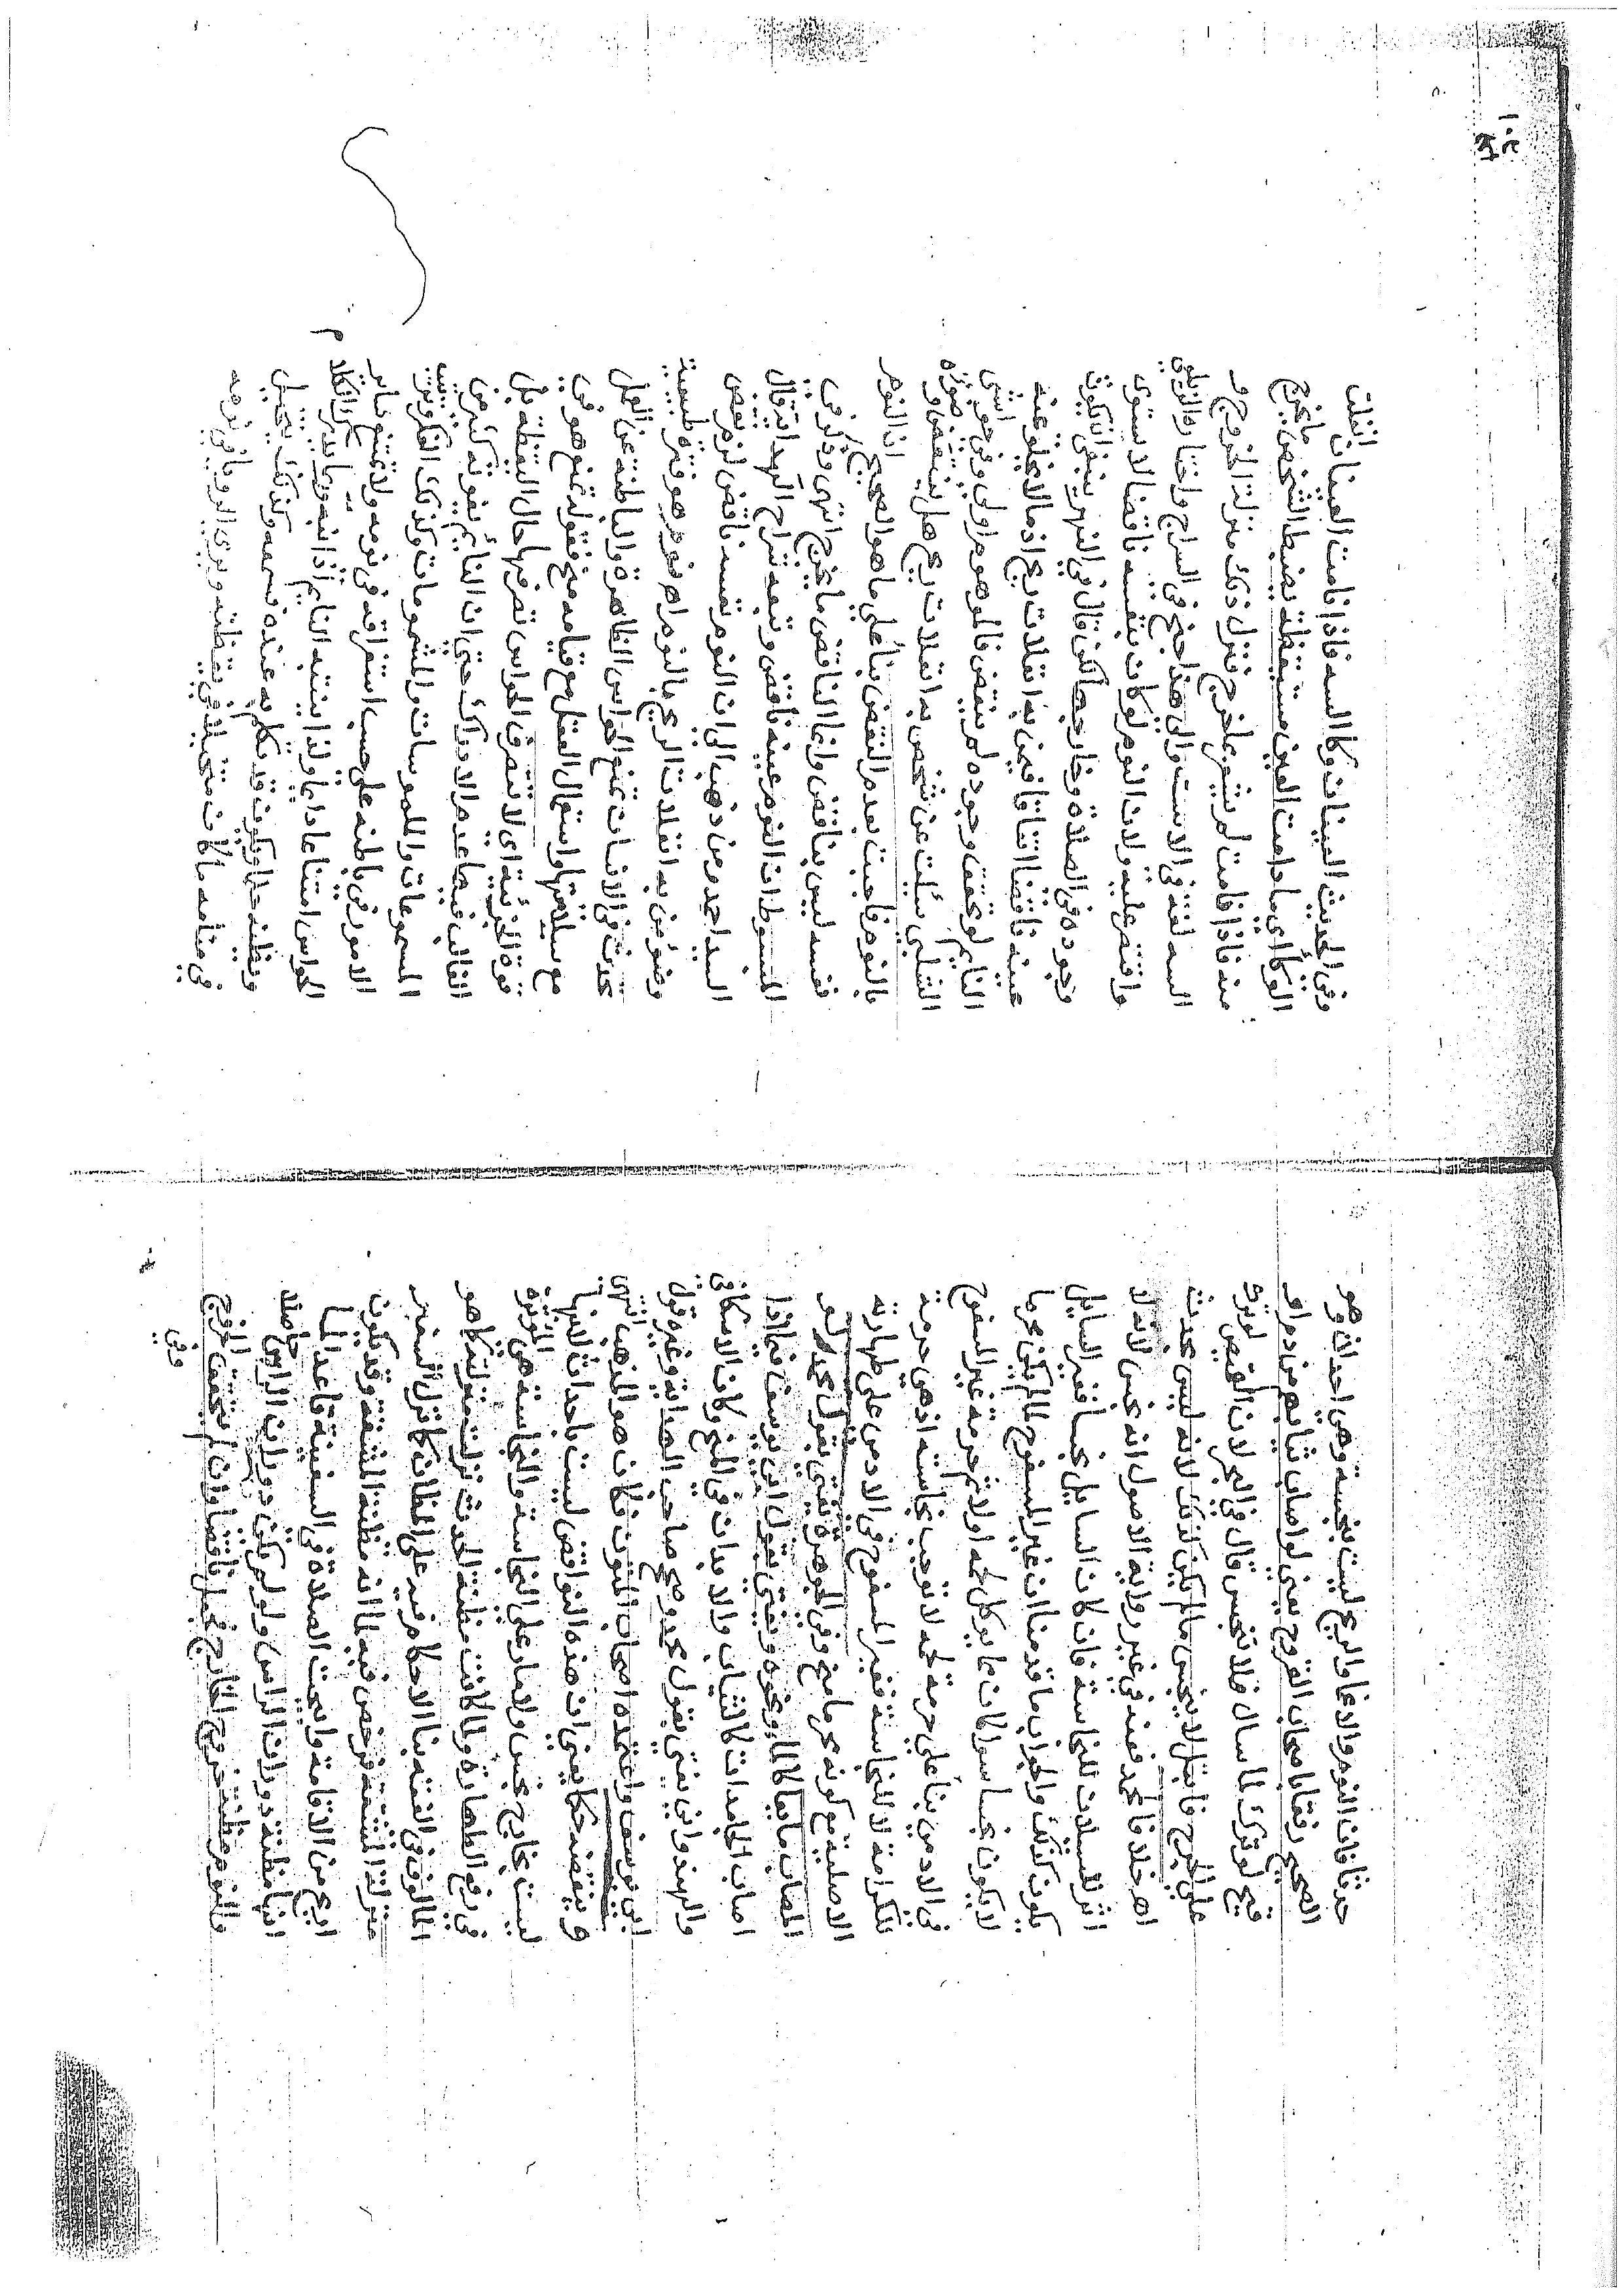 حدثا فان النوم والاغما والريح ليست بنجسة وهي احداث وهو
الصحيح رفقا باصحاب القروح يعني لو اصاب ثيابهم من دم او
قيح لو ترك لما سال فلا تنجس قال في البحر لان القميص لو تردد
على الجرح فابتل لا ينجس ما لم يكن كذلك لانه ليس بحدث
اهـ خلافا لمحمد فعنده في غير رواية الاصول انه نجس لانه لا
اثر للسيلان للنجاسة فاذا كان السايل نجسا فغير السايل
يكون كذلك والجواب ما قدمنا ان غير المسفوح لما لم يكن محرما
لا يكون نجسا سوا كان مما يوكل لحمه اولا ثم حرمة غير المسفوح
في الادمي بنا على حرمة لحمه لا توجب نجاسته اذ هي حرمته
للكرامة لا للنجاسة فغير المسفوح في الادمي على طهارته
الاصلية مع كونه محرما منح وفي الجوهرة يفتى بقول محمد لو
المصاب مايعا كالما ونحوه ويفتى بقول ابي يوسف فيما اذا
اصاب الجامدات كالثياب والابدان وفي المنح وكان الاسكاف
والهندواني يفتي بقول محمد وصحح صاحب الهداية وغيره قول
ابي يوسف واعتمده اصحاب المتون فكان هو المذهب انتهى
و ينقضه حكما يعني ان هذه النواقض ليست باحداث لانها
ليست بخارج نجس والمدار على النجاسة والنجاسة هي الموثرة
في رفع الطهارة ولما كانت مظنة الحدث نزلت منزلته كما هو
المالوف في الفقه بنا الاحكام فيه على المظان كما نزل السفر
منزلة المشقة فرخص فيه لما انه مظنة المشقة وقد يكون
اريح من الاقامة وابيحت الصلاة في السفينة قاعدا لما
انها مظنة دوران الراس ولو لم يكن دوران الراس حاصلا
والنوم مظنة خروج الخارج فجعل ناقضا وان لم يتحقق الخروج
وفي
وفي الحديث العينان وكا السه فاذا نامت العينان انفلت
الوكا أي ما دامت العين مستيقظة يضبط الشخص ما يخرج
منه فاذا نامت لم يشعر بما خرج فنزل ذلك منزلة الخروج و
السه لغة في الاست والى هذا جنح في السراج واختاره الزيلعي
واقتصر عليه ولان النوم لو كان بنفسه ناقضا لاستوى
وجوده في الصلاة وخارجها لكن قال في النهر ينبغي ان يكون
عينه ناقضا اتفاقا فيمن به انفلات ريح اذ ما لا يخلو عنه
النايم لو تحقق وجوده لم ينقض فالموهوم اولى وفي حويشي
الشلبي سئلت عن شخص به انفلات ريح هل ينتقض وضوءه
بالنوم فاجبت بعدم النقض بنا على ما هو الصحيح ان النوم
نفسه ليس بناقض وانما الناقض ما يخرج انتهى وذكر في
المبسوط ان النوم عينه ناقض وتبعه شراح الهداية قال
السيد احمد ومن ذهب الى ان النوم نفسه ناقض لزم نقض
وضوء من به انفلات الريح بالنوم اهـ نوم هو فترة طبيعية
تحدث في الانسان تمنع الحواس الظاهرة والباطنة عن العمل
مع سلامتها واستعمال العقل مع قيامه منح فقوله تمنع هو في
قوة الجزئية اى لا تتصرف الحواس تصرفها حال اليقظة بل
الغالب فيها عدم الادراك حتى ان النائم يفوته كثير من
المسموعات والملموسات والمشمومات وكذلك الفكر وترتيب
الامور في باطنه على حسب استغراقه في نومه ولا تمتنع ساير
الحواس امتناعا داعيا ولذا ينتبه النايم اذا انبه وربما يدرك بعض الكلام
ويظنه حلما ويكون قد تكلم به عنده فسمعه وكذلك يتخيل
في منامه ما كان متخيلا في يقظته ويرى الرويا في نومه